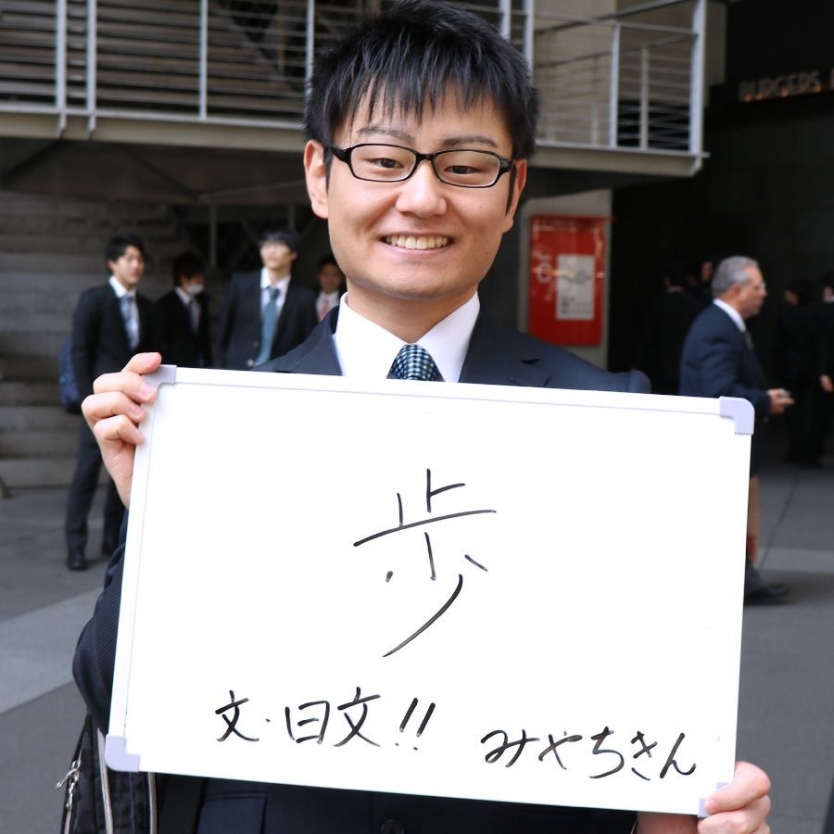 BURGERS
歩
文・日文!! みやちきん